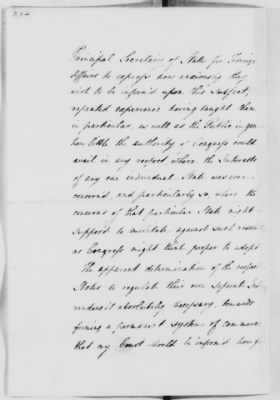 Principal Secretaries of State for Foreign
Affairs to express how anxiously they
wish to be inform'd upon this Subject,
repeated experience having taught them
in particular, as well as the Public in gen
how little the authority of Congress could
avail in any respect where the Interests
of any one individual State was even
concern'd, and particularly so, where the
concerns of that particular State might
suppos'd to militate against such
as Congress might think proper to adopt
The apparent determination of the
States to regulate their own Separate
renders it absolutely necessary, towards
forming a permanent system of commerce
that my Court should be inform'd how